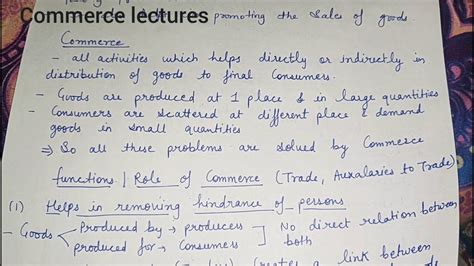 Commerce lectures
promoting the Sales of goods.
Commerce
- all activities which helps directly or indirectly in
distribution of goods to final Consumers.
- Goods are produced at 1 place & in large quantities
- Consumers are scattered at different place & demand
goods in small quantities
⇒ So all these problems are solved by Commerce
functions | Role of Commerce (Trade, Auxalaries to Trade)
(1) Helps in removing hindrance of persons
- Goods < Produced by → producers ] No direct relation between
produced for → Consumers ] both
creates a link between